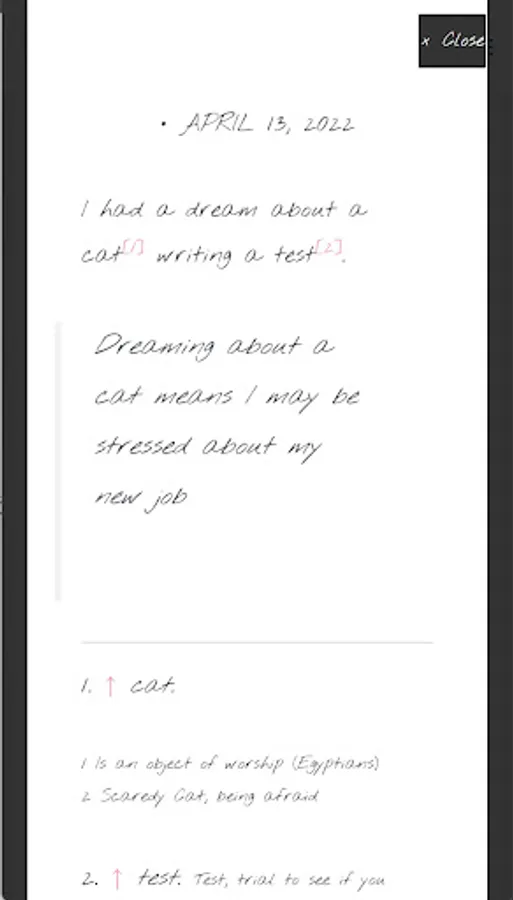 x Close
• APRIL 13, 2022
I had a dream about a
cat[1] writing a test[2].
Dreaming about a
cat means I may be
stressed about my
new job
1. ↑ cat.
1 Is an object of worship (Egyptians)
2 Scaredy Cat, being afraid
2. ↑ test. Test, trial to see if you